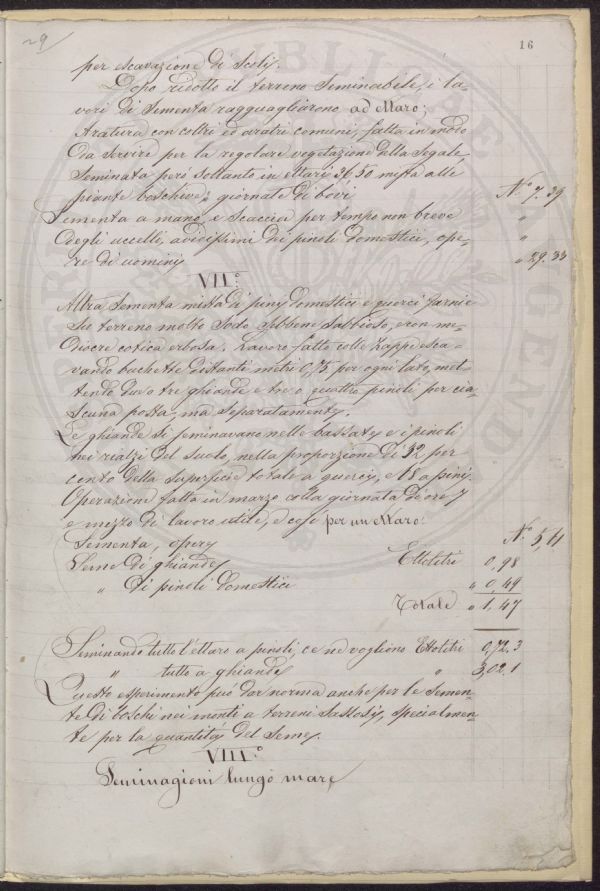 29
16
per escavazione di Scoli.
Dopo ridotto il terreno seminabile, i la-
vori di sementa ragguagliarono ad Ettaro;
Aratura con coltri ed aratri comuni, fatta in modo
da servire per la regolare vegetazione della Segale
Seminata però soltanto in ettari 36.50 mista alle
piante boschive; giornate di bovi N.° 7.29
Sementa a mano, e scaccia per tempo non breve "
degli uccelli, avidissimi dei pinoli domestici, ope- "
re di uomini " 29.33
VII.°
Altra Sementa mista di pini domestici e querci farnie
su terreno molto sodo sebbene sabbioso, e con me-
diocre cotica erbosa. Lavoro fatto colle Zappe esca-
vando buchette distanti metri 0,75 per ogni lato, met-
tendo due o tre ghiande e tre o quattro pinoli per cia-
scuna posta, ma separatamente.
Le ghiande si seminavano nelle bassate e i pinoli
nei rialzi del suolo, nella proporzione di 32 per
cento della superficie totale a querci, e 68 a pini.
Operazione fatta in marzo colla giornata di ore 7
e mezzo di lavoro utile, e così per un ettaro.
Sementa, opere N.° 5,11
Seme di ghiande Ettolitri 0,98
" di pinoli domestici " 0,49
Totale " 1.47
Seminando tutto l'ettaro a pinoli, ce ne vogliono Ettolitri 0,72.3
" tutto a ghiande " 3,02.1
Questo esperimento può dar norma anche per le semen-
te di boschi nei monti a terreni sassosi, specialmen-
te per la quantità del Seme.
VIII.°
Seminagioni lungo mare